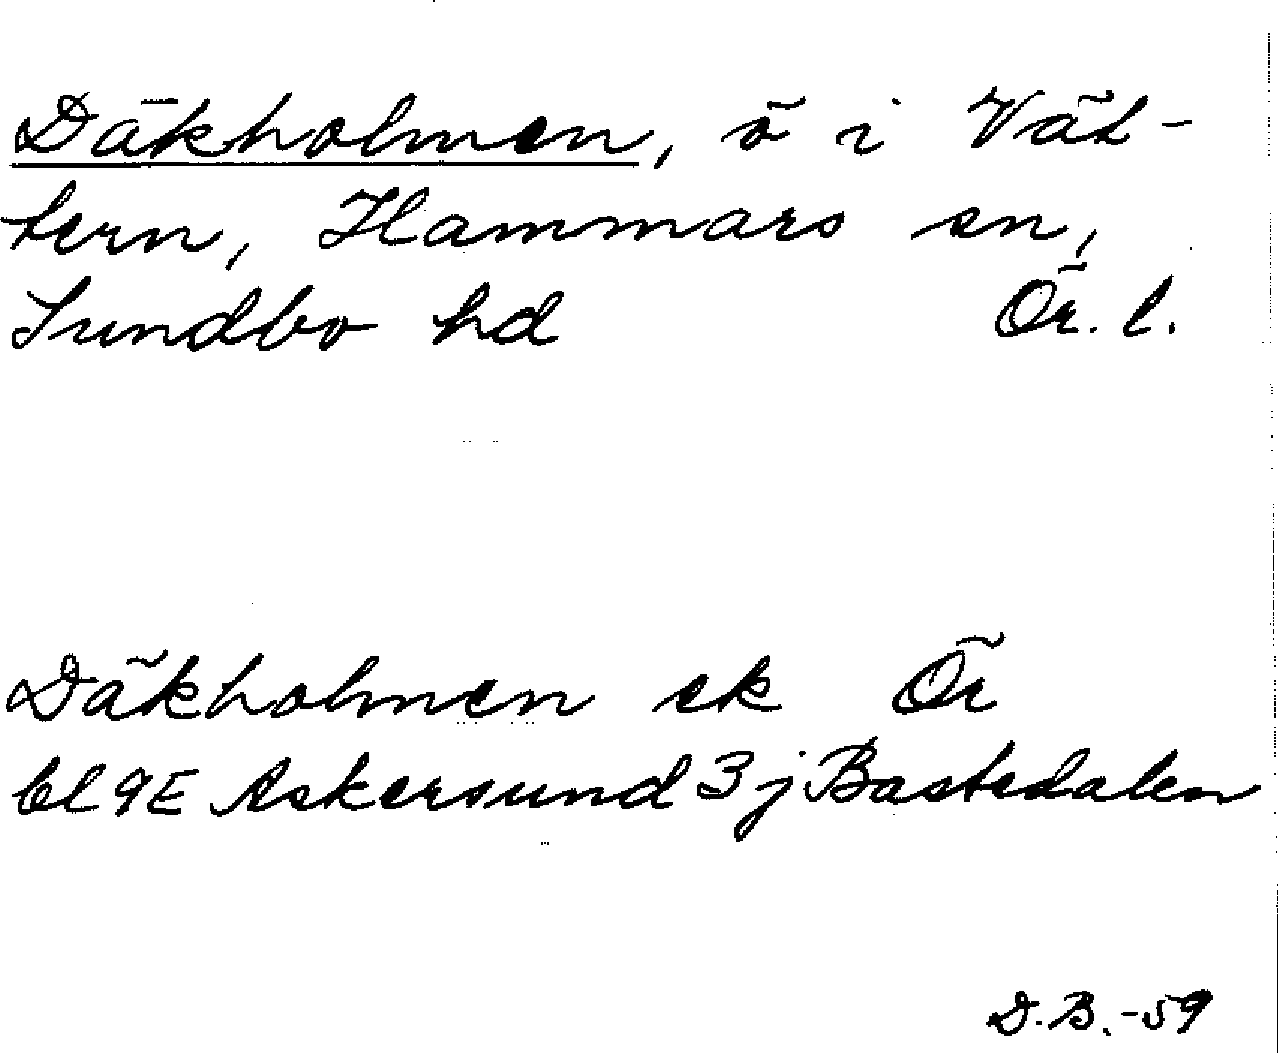 Däkholmen, ö i Vät-
tern, Hammars sn,
Sundbo hd Ör. l.
Däkholmen ek Ör
bl 9E Askersund 3j Bastedalen
D.B.-59